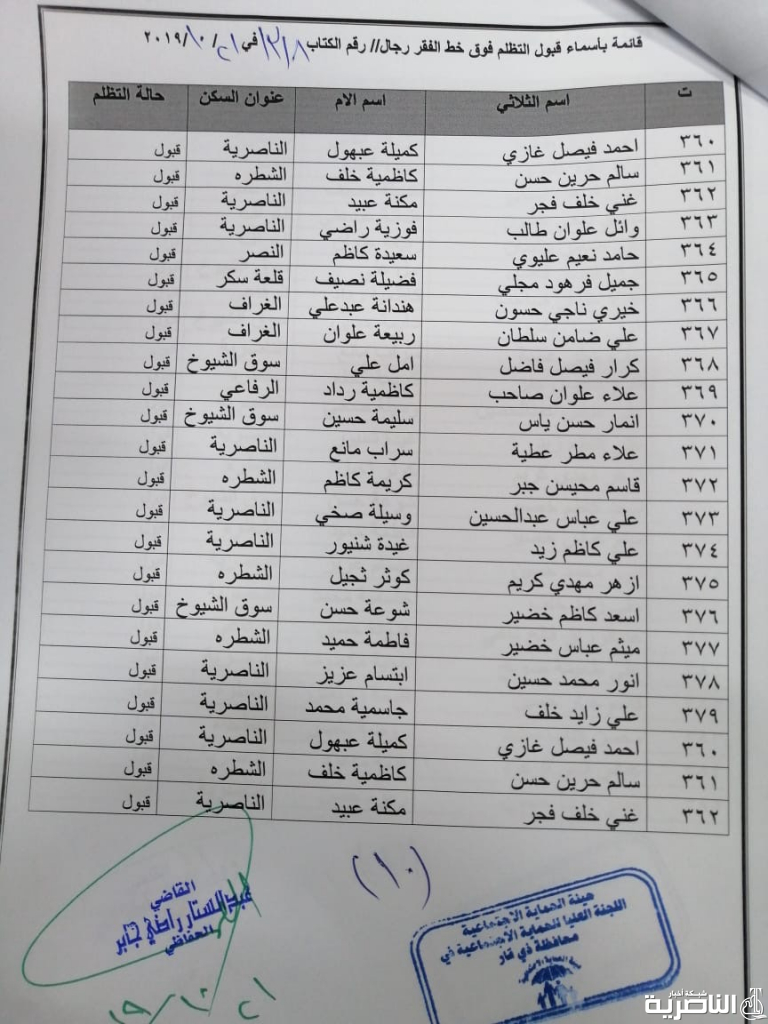 قائمة بأسماء قبول التظلم فوق خط الفقر رجال// رقم الكتاب ١٣٨ في ٢١/ ١٠/ ٢٠١٩
ت اسم الثلاثي اسم الام عنوان السكن حالة التظلم
٣٦٠ احمد فيصل غازي كميلة عبهول الناصرية قبول
٣٦١ سالم حرين حسن كاظمية خلف الشطره قبول
٣٦٢ غني خلف فجر مكنة عبيد الناصرية قبول
٣٦٣ وائل علوان طالب فوزية راضي الناصرية قبول
٣٦٤ حامد نعيم عليوي سعيدة كاظم النصر قبول
٣٦٥ جميل فرهود مجلي فضيلة نصيف قلعة سكر قبول
٣٦٦ خيري ناجي حسون هندانة عبدعلي الغراف قبول
٣٦٧ علي ضامن سلطان ربيعة علوان الغراف قبول
٣٦٨ كرار فيصل فاضل امل علي سوق الشيوخ قبول
٣٦٩ علاء علوان صاحب كاظمية رداد الرفاعي قبول
٣٧٠ انمار حسن ياس سليمة حسين سوق الشيوخ قبول
٣٧١ علاء مطر عطية سراب مانع الناصرية قبول
٣٧٢ قاسم محيسن جبر كريمة كاظم الشطره قبول
٣٧٣ علي عباس عبدالحسين وسيلة صخي الناصرية قبول
٣٧٤ علي كاظم زيد غيدة شنيور الناصرية قبول
٣٧٥ ازهر مهدي كريم كوثر ثجيل الشطره قبول
٣٧٦ اسعد كاظم خضير شوعة حسن سوق الشيوخ قبول
٣٧٧ ميثم عباس خضير فاطمة حميد الشطره قبول
٣٧٨ انور محمد حسين ابتسام عزيز الناصرية قبول
٣٧٩ علي زايد خلف جاسمية محمد الناصرية قبول
٣٦٠ احمد فيصل غازي كميلة عبهول الناصرية قبول
٣٦١ سالم حرين حسن كاظمية خلف الشطره قبول
٣٦٢ غني خلف فجر مكنة عبيد الناصرية قبول
(١٠)
هيئة الحماية الاجتماعية
اللجنة العليا للحماية الاجتماعية في
محافظة ذي قار
القاضي
عبدالستار راضي جابر
الخفاجي
٢١/١٠/١٩
شبكة أخبار
الناصرية